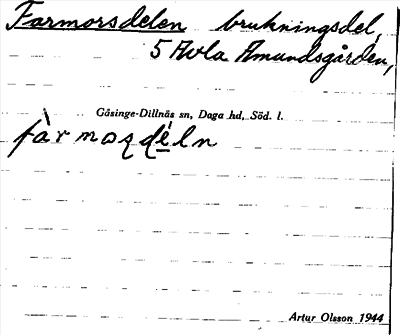 Farmorsdelen brukningsdel,
5 Avla Amundsgården,
Gåsinge-Dillnäs sn, Daga hd, Söd. l.
fàrmoʂdéln
Artur Olsson 1944